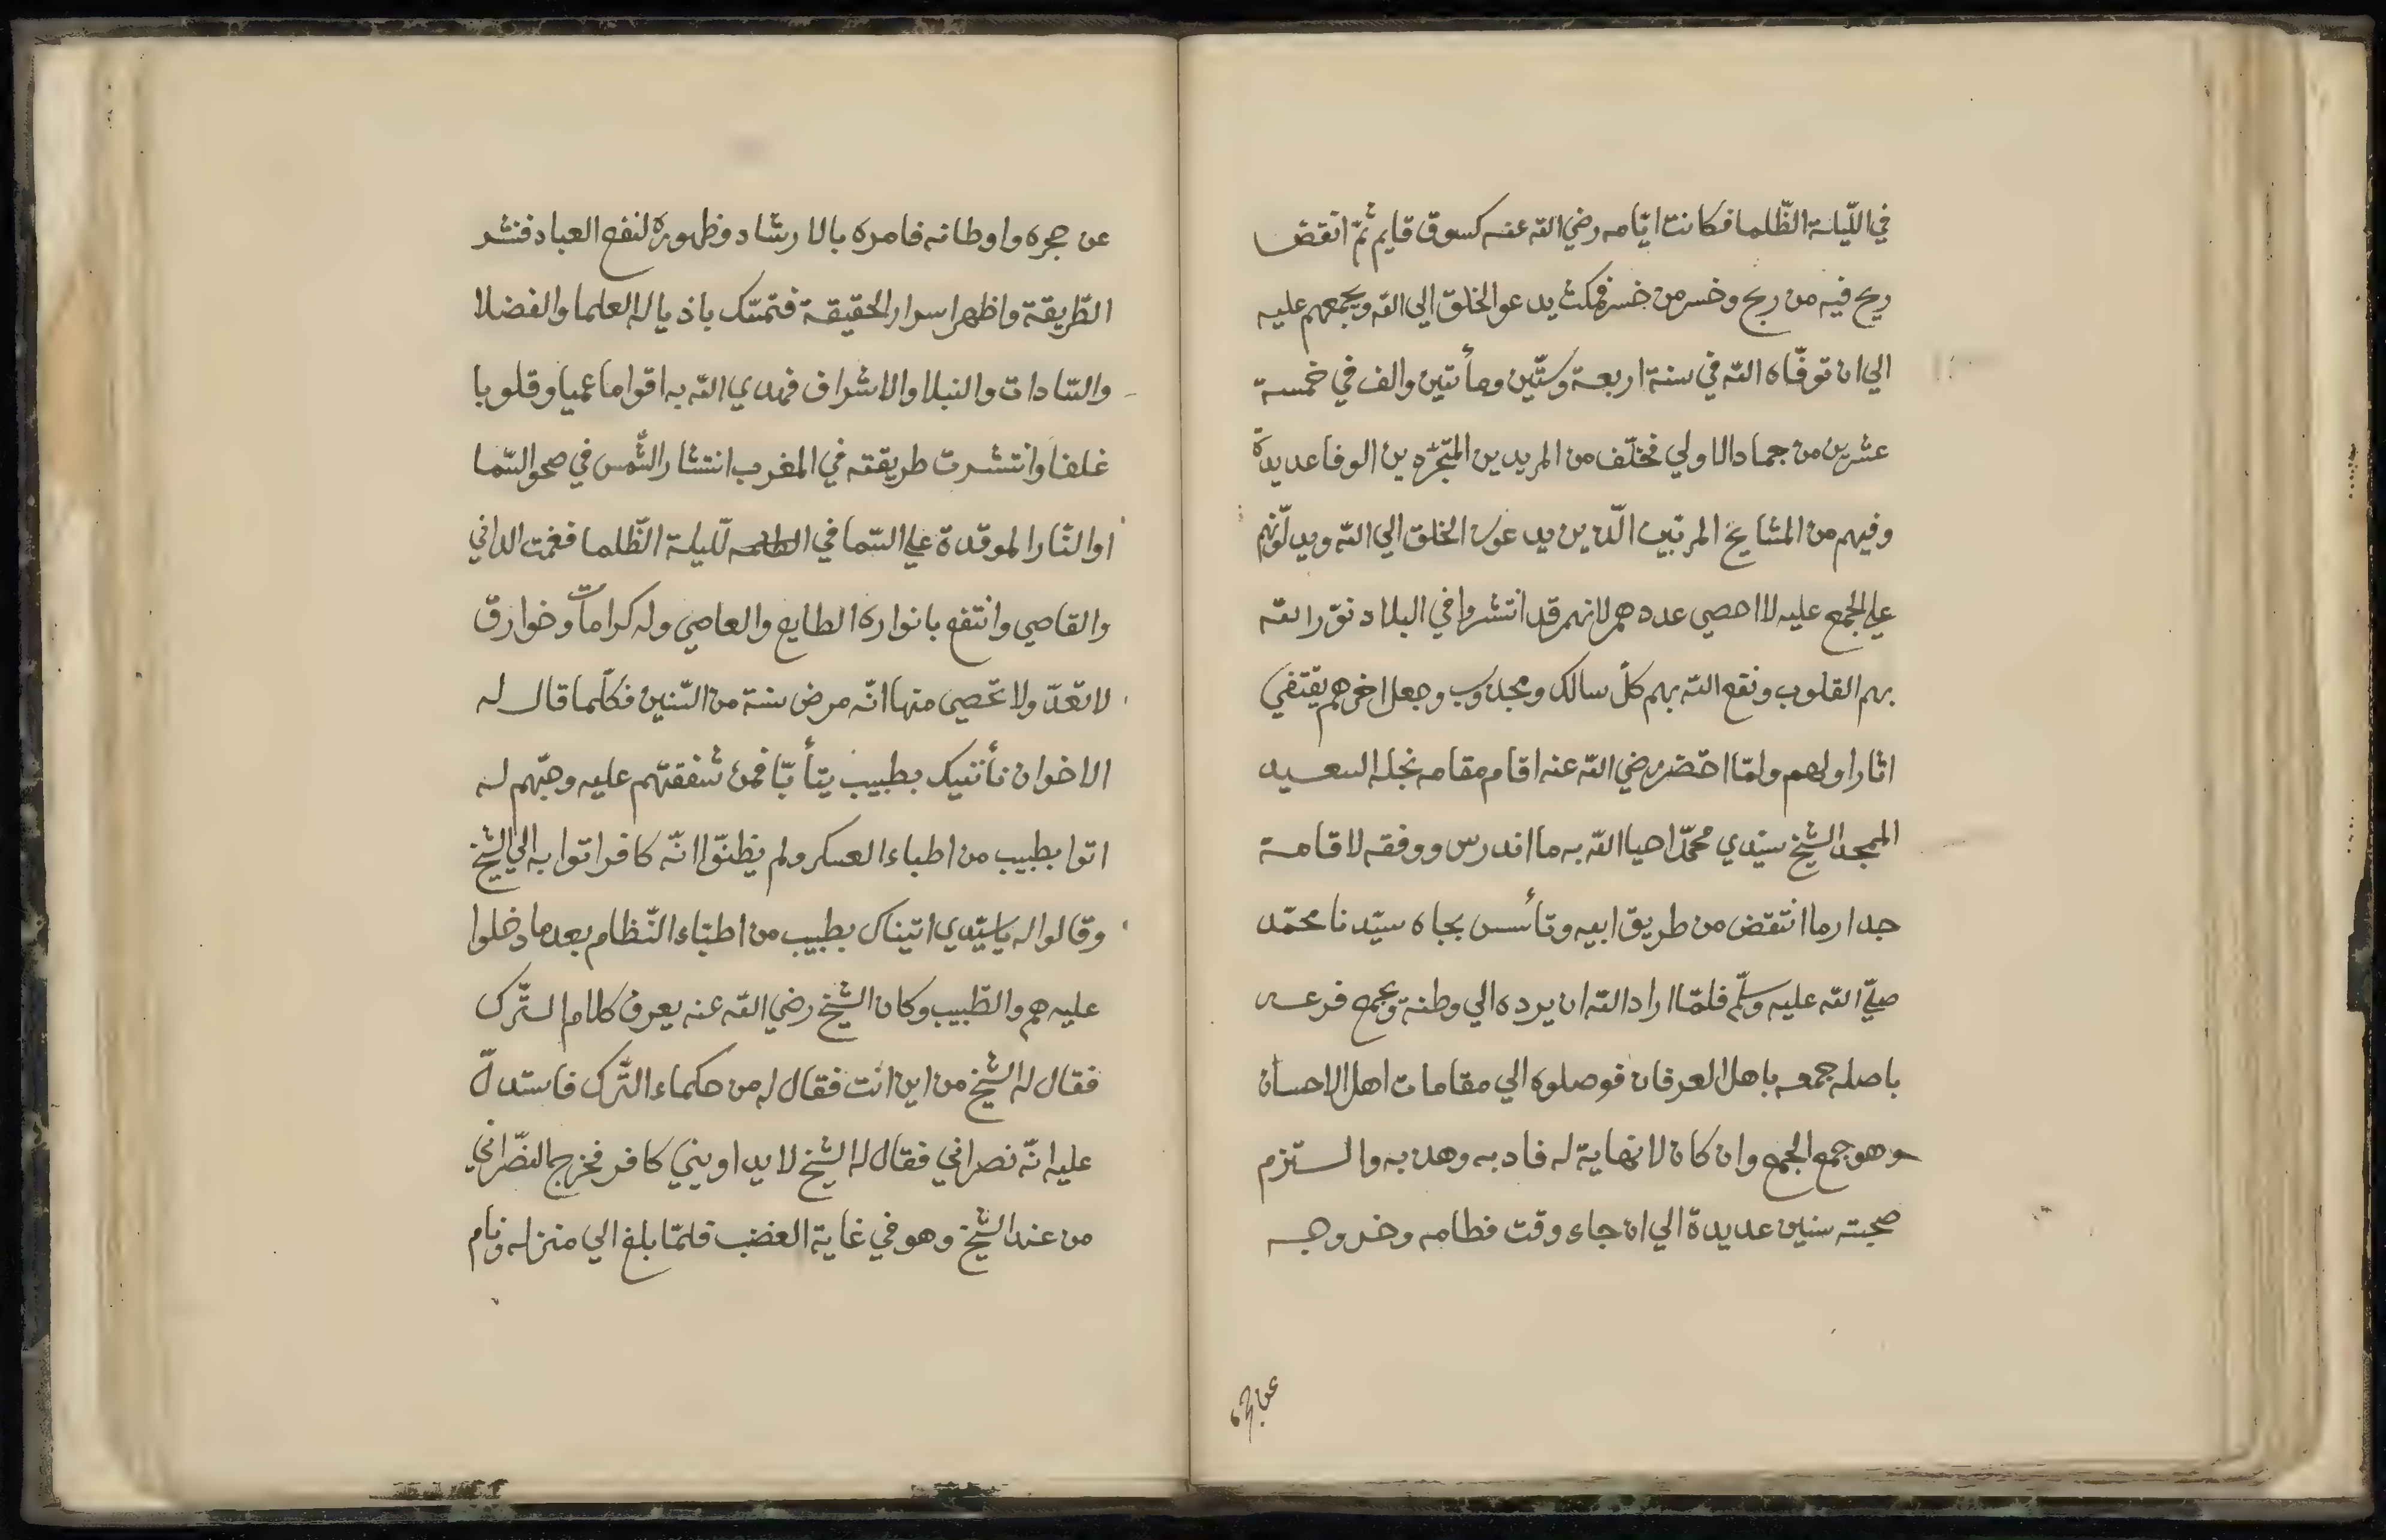 في اللّيلة الظّلما فكانت ايّامه رضي الله عنه كسوق قايم ثمّ انقض
ربح فيه من ربح وخسر من خسر فمكث يدعو الخلق الي الله ويجمعهم عليه
الي ان توفّاه الله في سنة اربعة وستّين ومأتين والف في خمسة
عشرين من جماد الاولي فخلّف من المريدين المتجرّدين الوفا عديدة
وفيهم من المشايخ المربّين الّذين يدعون الخلق الي الله ويدلّونهم
علي الجمع عليه لا احصي عددهم لانهم قد انتشروا في البلاد نوّر الله
بهم القلوب ونفع الله بهم كلّ سالك ومجذوب وجعل اخرهم يقتفي
اثار اولهم ولمّا احتضر رضي الله عنه اقام مقامه نجله السعيد
الممجد الشيخ سيّدي محمّد احيا الله به ما اندرس ووفقه لاقامة
جدار ما انتقض من طريق ابيه وتأسس بجاه سيّدنا محمّد
صلّي الله عليه وسلّم فلمّا اراد الله ان يرده الي وطنه ويجمع فرعه
باصله جمعه باهل العرفان فوصلوه الي مقامات اهل الاحسان
وهو جمع الجمع وان كان لا نهاية له فادبه وهذبه والتزم
صحبته سنين عديدة الي ان جاء وقت فطامه وخروجه
عن حجره
عن حجره واوطانه فامره بالارشاد وظهوره لنفع العباد فنشر
الطّريقة واظهر اسرار الحقيقة فتمسّك باذياله العلما والفضلا
والسّادات والنبلا والاشراف فهدي الله به اقواما عميا وقلوبا
غلفا وانتشرت طريقته في المغرب انتشار الشّمس في صحو السّما
او النّار الموقدة علي السّما في اللّيلة الظّلما فغمت الداني
والقاصي وانتفع بانواره الطايع والعاصي وله كرامات وخوارق
لا تعدّ ولا تحصي منها انّه مرض سنة من السّنين فكلّما قال له
الاخوان نأتيك بطبيب يتأبّا فمن شفقتهم عليه وحبّهم له
اتوا بطبيب من اطباء العسكر ولم يظنّوا انّه كافر اتوا به الي الشيخ
وقالوا له يا سيّدي اتيناك بطبيب من اطبّاء النّظام بعدما دخلوا
عليه هم والطّبيب وكان الشيخ رضي الله عنه يعرف كلام التّرك
فقال له الشيخ من اين انت فقال له من حكماء التّرك فاستدلّ
عليه انّه نصراني فقال له الشيخ لا يداويني كافر فخرج النصّراني
من عند الشيخ وهو في غاية الغضب فلمّا بلغ الي منزله ونام